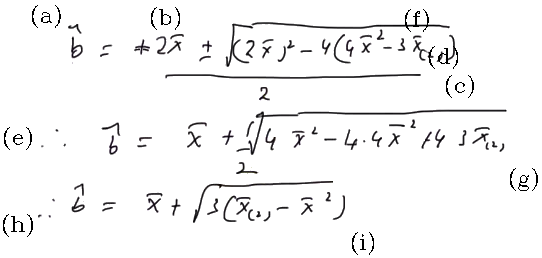 (a) (b) (f)
b̂ = +2x̄ ± √((2x̄)² − 4(4x̄² − 3x̄₍₂₎)) / 2 (d)
(c)
(e) ∴ b̂ = x̄ + √(4x̄² − 4·4x̄² + 4 3x̄₍₂₎) / 2
(g)
(h) ∴ b̂ = x̄ + √(3(x̄₍₂₎ − x̄²))
(i)